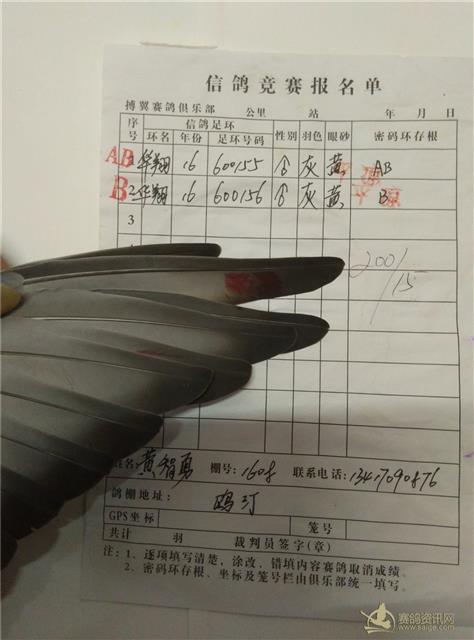 信鸽竞赛报名单
搏翼赛鸽俱乐部 公里 站 年 月 日
序号 信鸽足环 性别 羽色 眼砂 密码环存根
环名 年份 足环号码
AB 1 华翔 16 600155 灰 黄 AB
B 2 华翔 16 600156 灰 黄 B
3
200/15
姓名: 黄智勇 棚号: 1608 联系电话:
鸽棚地址:
GPS坐标 笼号
共计 羽 裁判员签字(章)
注: 1、逐项填写清楚,涂改、错填内容赛鸽取消成绩。
2、密码环存根、坐标及笼号栏由俱乐部统一填写。
赛鸽资讯网
www.saige.com